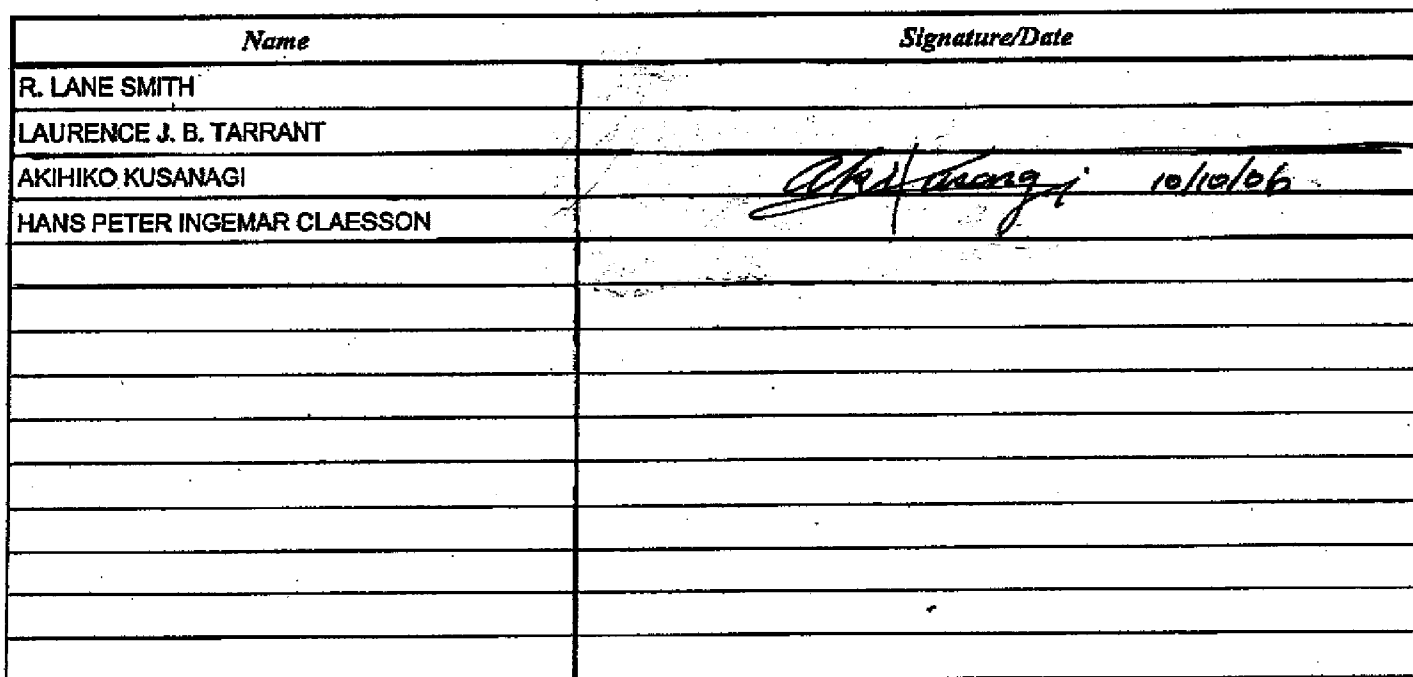 Name Signature/Date
R. LANE SMITH
LAURENCE J. B. TARRANT
AKIHIKO KUSANAGI Aki Kusanagi 10/10/06
HANS PETER INGEMAR CLAESSON